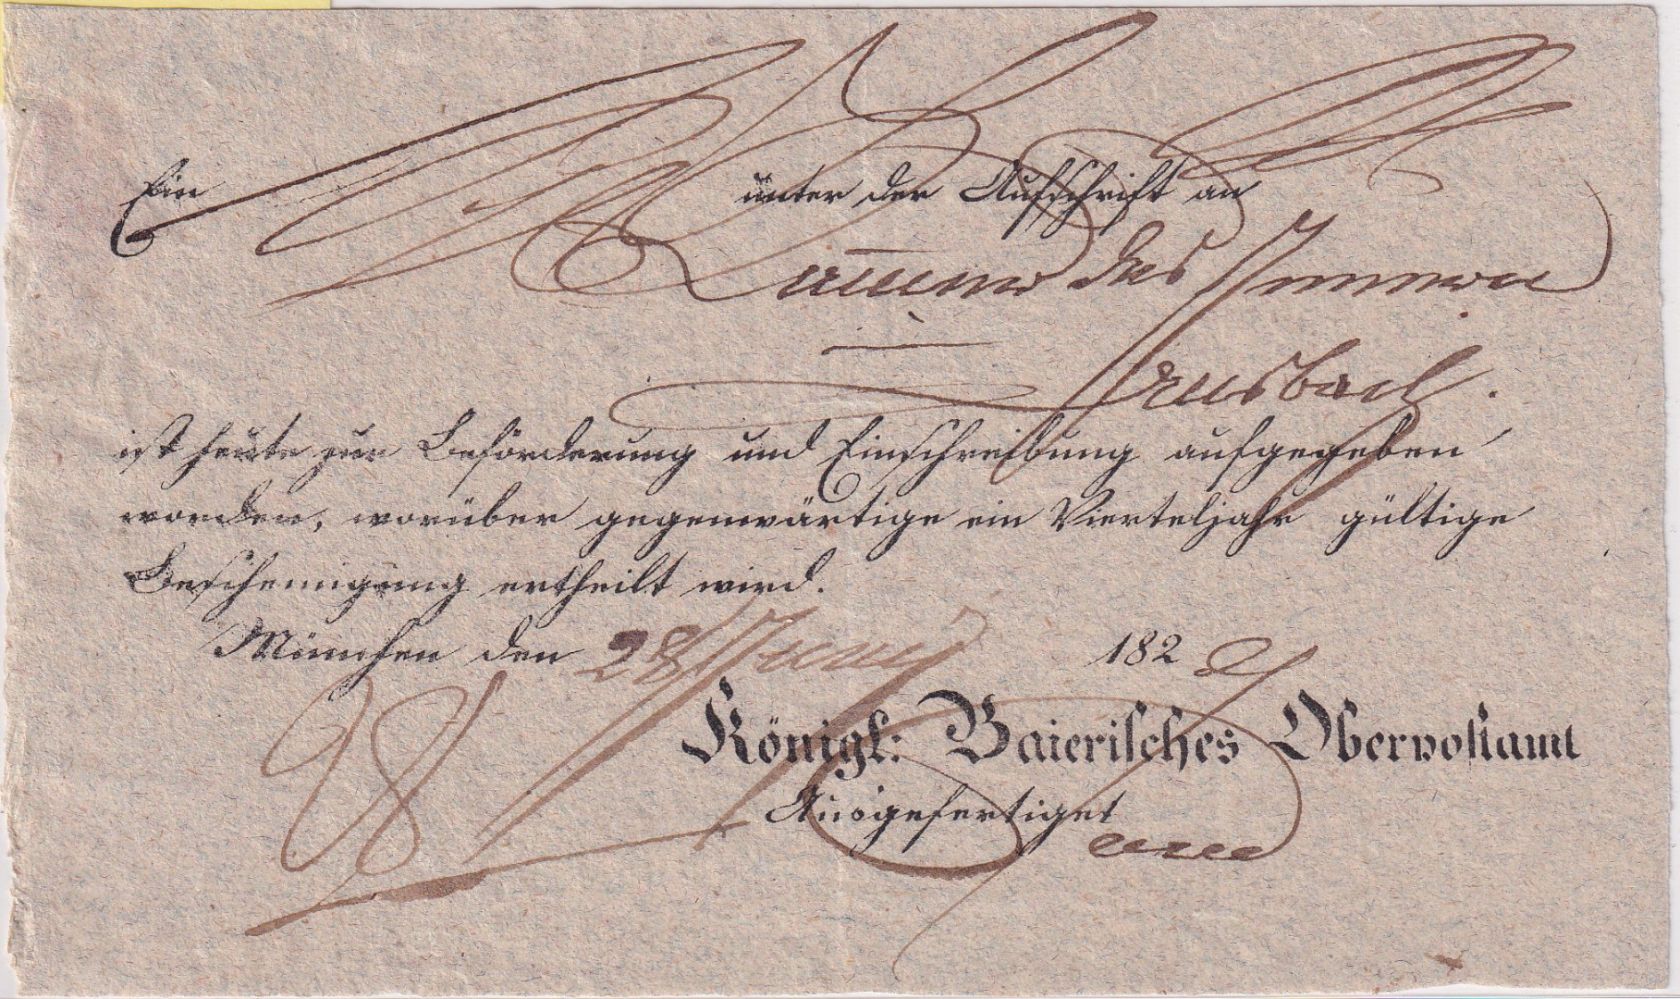 Ein unter der Aufschrift an
Kammer des Innern
Ansbach.
ist heute zur Beförderung und Einschreibung aufgegeben
worden, worüber gegenwärtige ein Vierteljahr gültige
Bescheinigung ertheilt wird.
München den 28 Juny 182
Königl: Baierisches Oberpostamt
Ausgefertiget